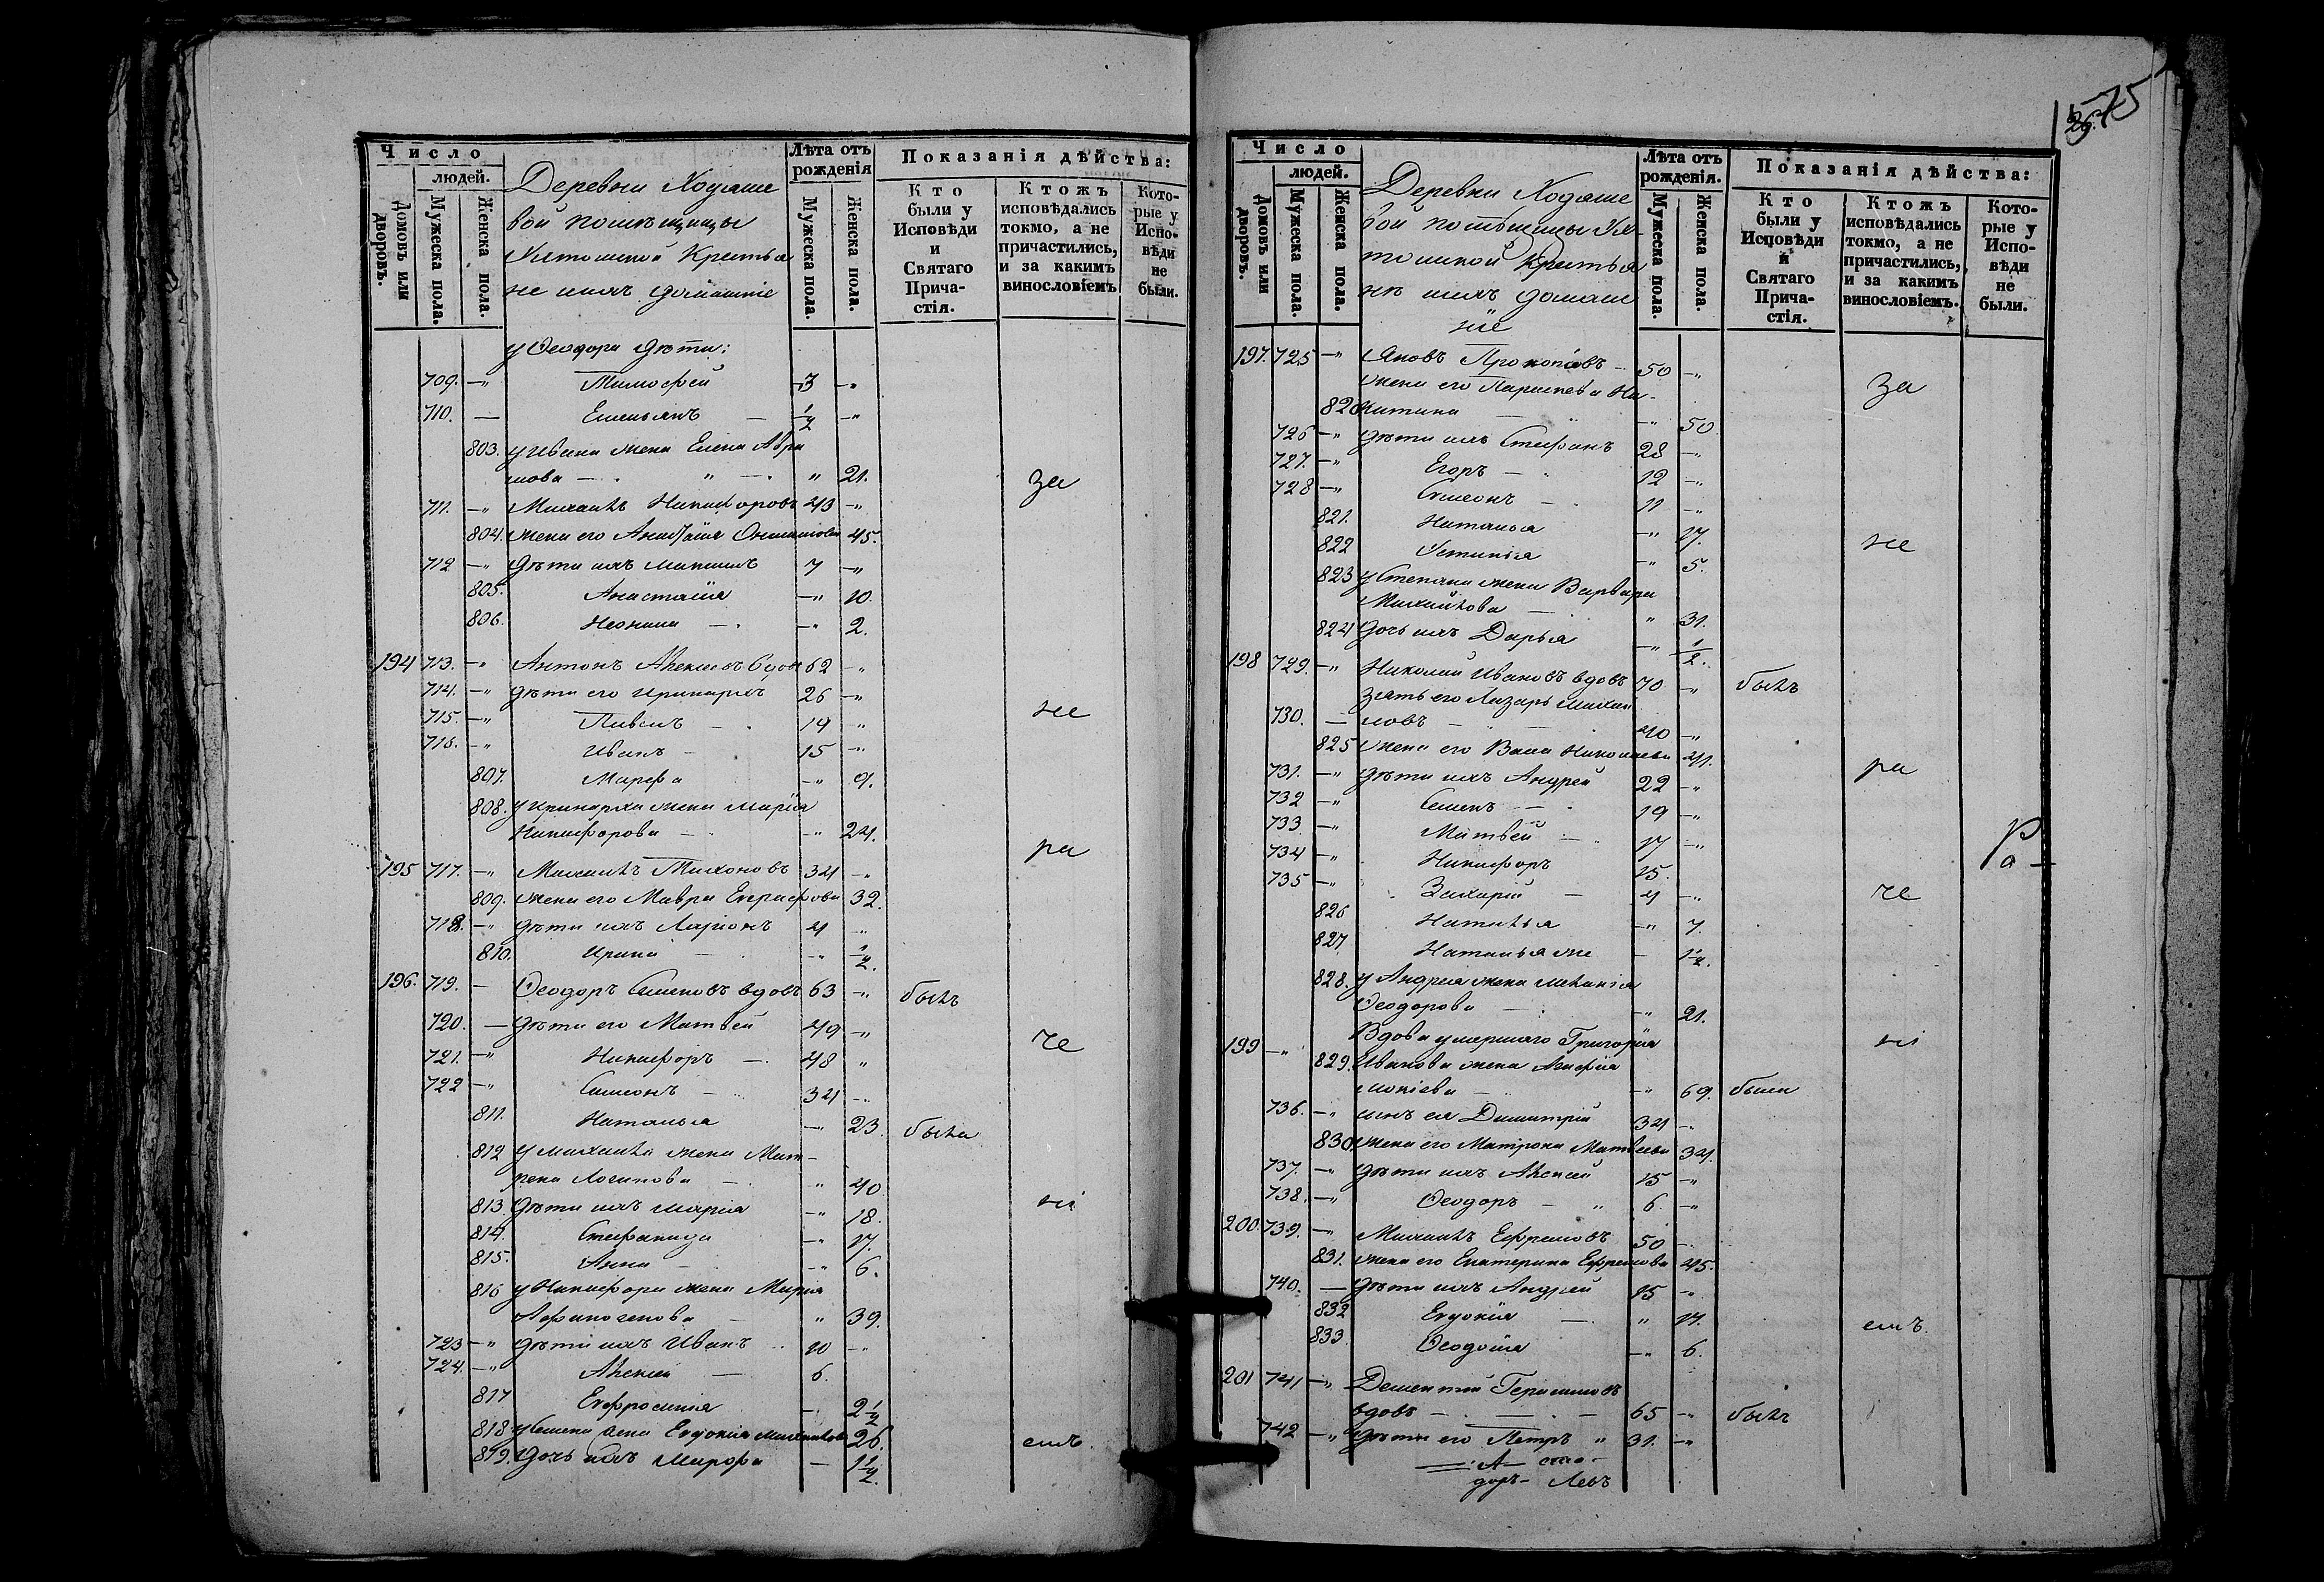 Число
людей.
Домовъ или дворовъ.
Мужеска пола.
Женска пола.
Деревни Ходяше
вой помѣщицы
Крестья
не ихъ домашніе
Лѣта отъ рожденія
Мужеска пола.
Женска пола.
Показанія дѣйства:
Кто были у Исповѣди и Святаго Прича-стія.
Ктожъ исповѣдались токмо, а не причастились, и за какимъ винословіемъ
Кото-рые у Испо-вѣди не были.
у Ѳеодора дѣти:
709. —„ Тимофей 3 —„
710. — Емельянъ — ½ —„
803. у Ивана жена Елена Авра
мова — „ — „ 21. за
711. —„ Михаилъ Никифоровъ 43 —„
804. жена его 45.
712 —„ дѣти ихъ Максимъ 7 —„
805. Анастасія —„ 10.
806. Неонила — —„ 2.
194 713. —„ Антонъ Алексѣевъ вдовъ 62 —„
714. —„ дѣти его Иринархъ 26 —„
715. —„ Павелъ — 19 „ не
716. —„ Иванъ — 15 —„
807. Марфа —„ 9.
808. у Иринарха жена Марія
Никифорова — —„ 24. ра
195 717. —„ Михаилъ Тихоновъ 34 —„
809. жена его Мавра Евграфова 32.
718. —„ дѣти ихъ Ларіонъ 4 „
810. Ирина — —„ ½.
196. 719. — Ѳеодоръ Семеновъ вдовъ 63 —„ былъ
720. — дѣти его Матвей 49 —„ че
721. —„ Никифоръ — 48 „
722 —„ Симеонъ — 34 —„
811. Наталья —„ 23. была
812 у Михаила жена Мат-
рена Логинова — „ 40. ні
813. дѣти ихъ Марія —„ 18.
814. Стефанида —„ 17.
815. Анна — —„ 6.
816 у Никифора жена Марія
Афиногенова — „ 39.
723 —„ дѣти ихъ Иванъ 10 —„
724. —„ Алексей — 6.
817 Евфросинія — 2½
818 у Семена жена Евдокія Михайлова 26. емъ.
819. дочь ихъ Марфа — 1½.
75
Число
людей.
Домовъ или дворовъ.
Мужеска пола.
Женска пола.
Деревни Ходяше
вой помѣщицы
Крестья
нѣ ихъ домаш
ніе
Лѣта отъ рожденія.
Мужеска пола.
Женска пола.
Показанія дѣйства:
Кто были у Исповѣди и Святаго Прича-стія.
Ктожъ исповѣдались токмо, а не причастились, и за какимъ винословіемъ.
Кото-рые у Испо-вѣди не были.
197. 725 —„ Яковъ Прокопіевъ — 50 —„ за
жена его Параскева Ни-
820 китина — —„ 50.
726 —„ дѣти ихъ Стефанъ 28 —„
727. —„ Егоръ — 12 —„
728 —„ Симеонъ — 11 —„
821. Наталья —„ 17. не
822 Устинія —„ 5.
823 у Степана жена Варвара
Михайлова — „ 31.
824 дочь ихъ Дарья —„ ½.
198 729. —„ Николай Ивановъ вдовъ 70 —„ былъ
зять его Лазарь Михаи
730. — ловъ — 40 —„
825 жена его Васа Николаева 41. ра
731. —„ дѣти ихъ Андрей 22 —„
732 —„ Семенъ — 19 —„
733 —„ Матвей — 17 —„
734 —„ Никифоръ 15.
735 —„ Захарій — 4 —„ че
826 Наталья —„ 7.
827. Наталья же — 1½.
828. у Андрея жена Меланія
Ѳеодорова — —„ 21.
Вдова умершаго Григорія ні
199 —„ 829. Иванова жена Агафія
Мокіева — —„ 69. была
736. —„ сынъ ея Димитрій 34 —„
830. жена его Матрона Матвеева 34.
737. —„ дѣти ихъ Алексей 15 —„
738. —„ Ѳеодоръ — „ 6. —„
200. 739. —„ Михаилъ Ефремовъ 50 —
831. жена его Екатерина Ефремова 45.
740. — дѣти ихъ Андрей 15 —„
832 Евдокія — „ 17. емъ.
833. Ѳеодосія —„ 6.
201 741 —„ Дементій Герасимовъ
вдовъ — 65 —„ былъ
742 —„ дѣти его Петръ „ 31. —„